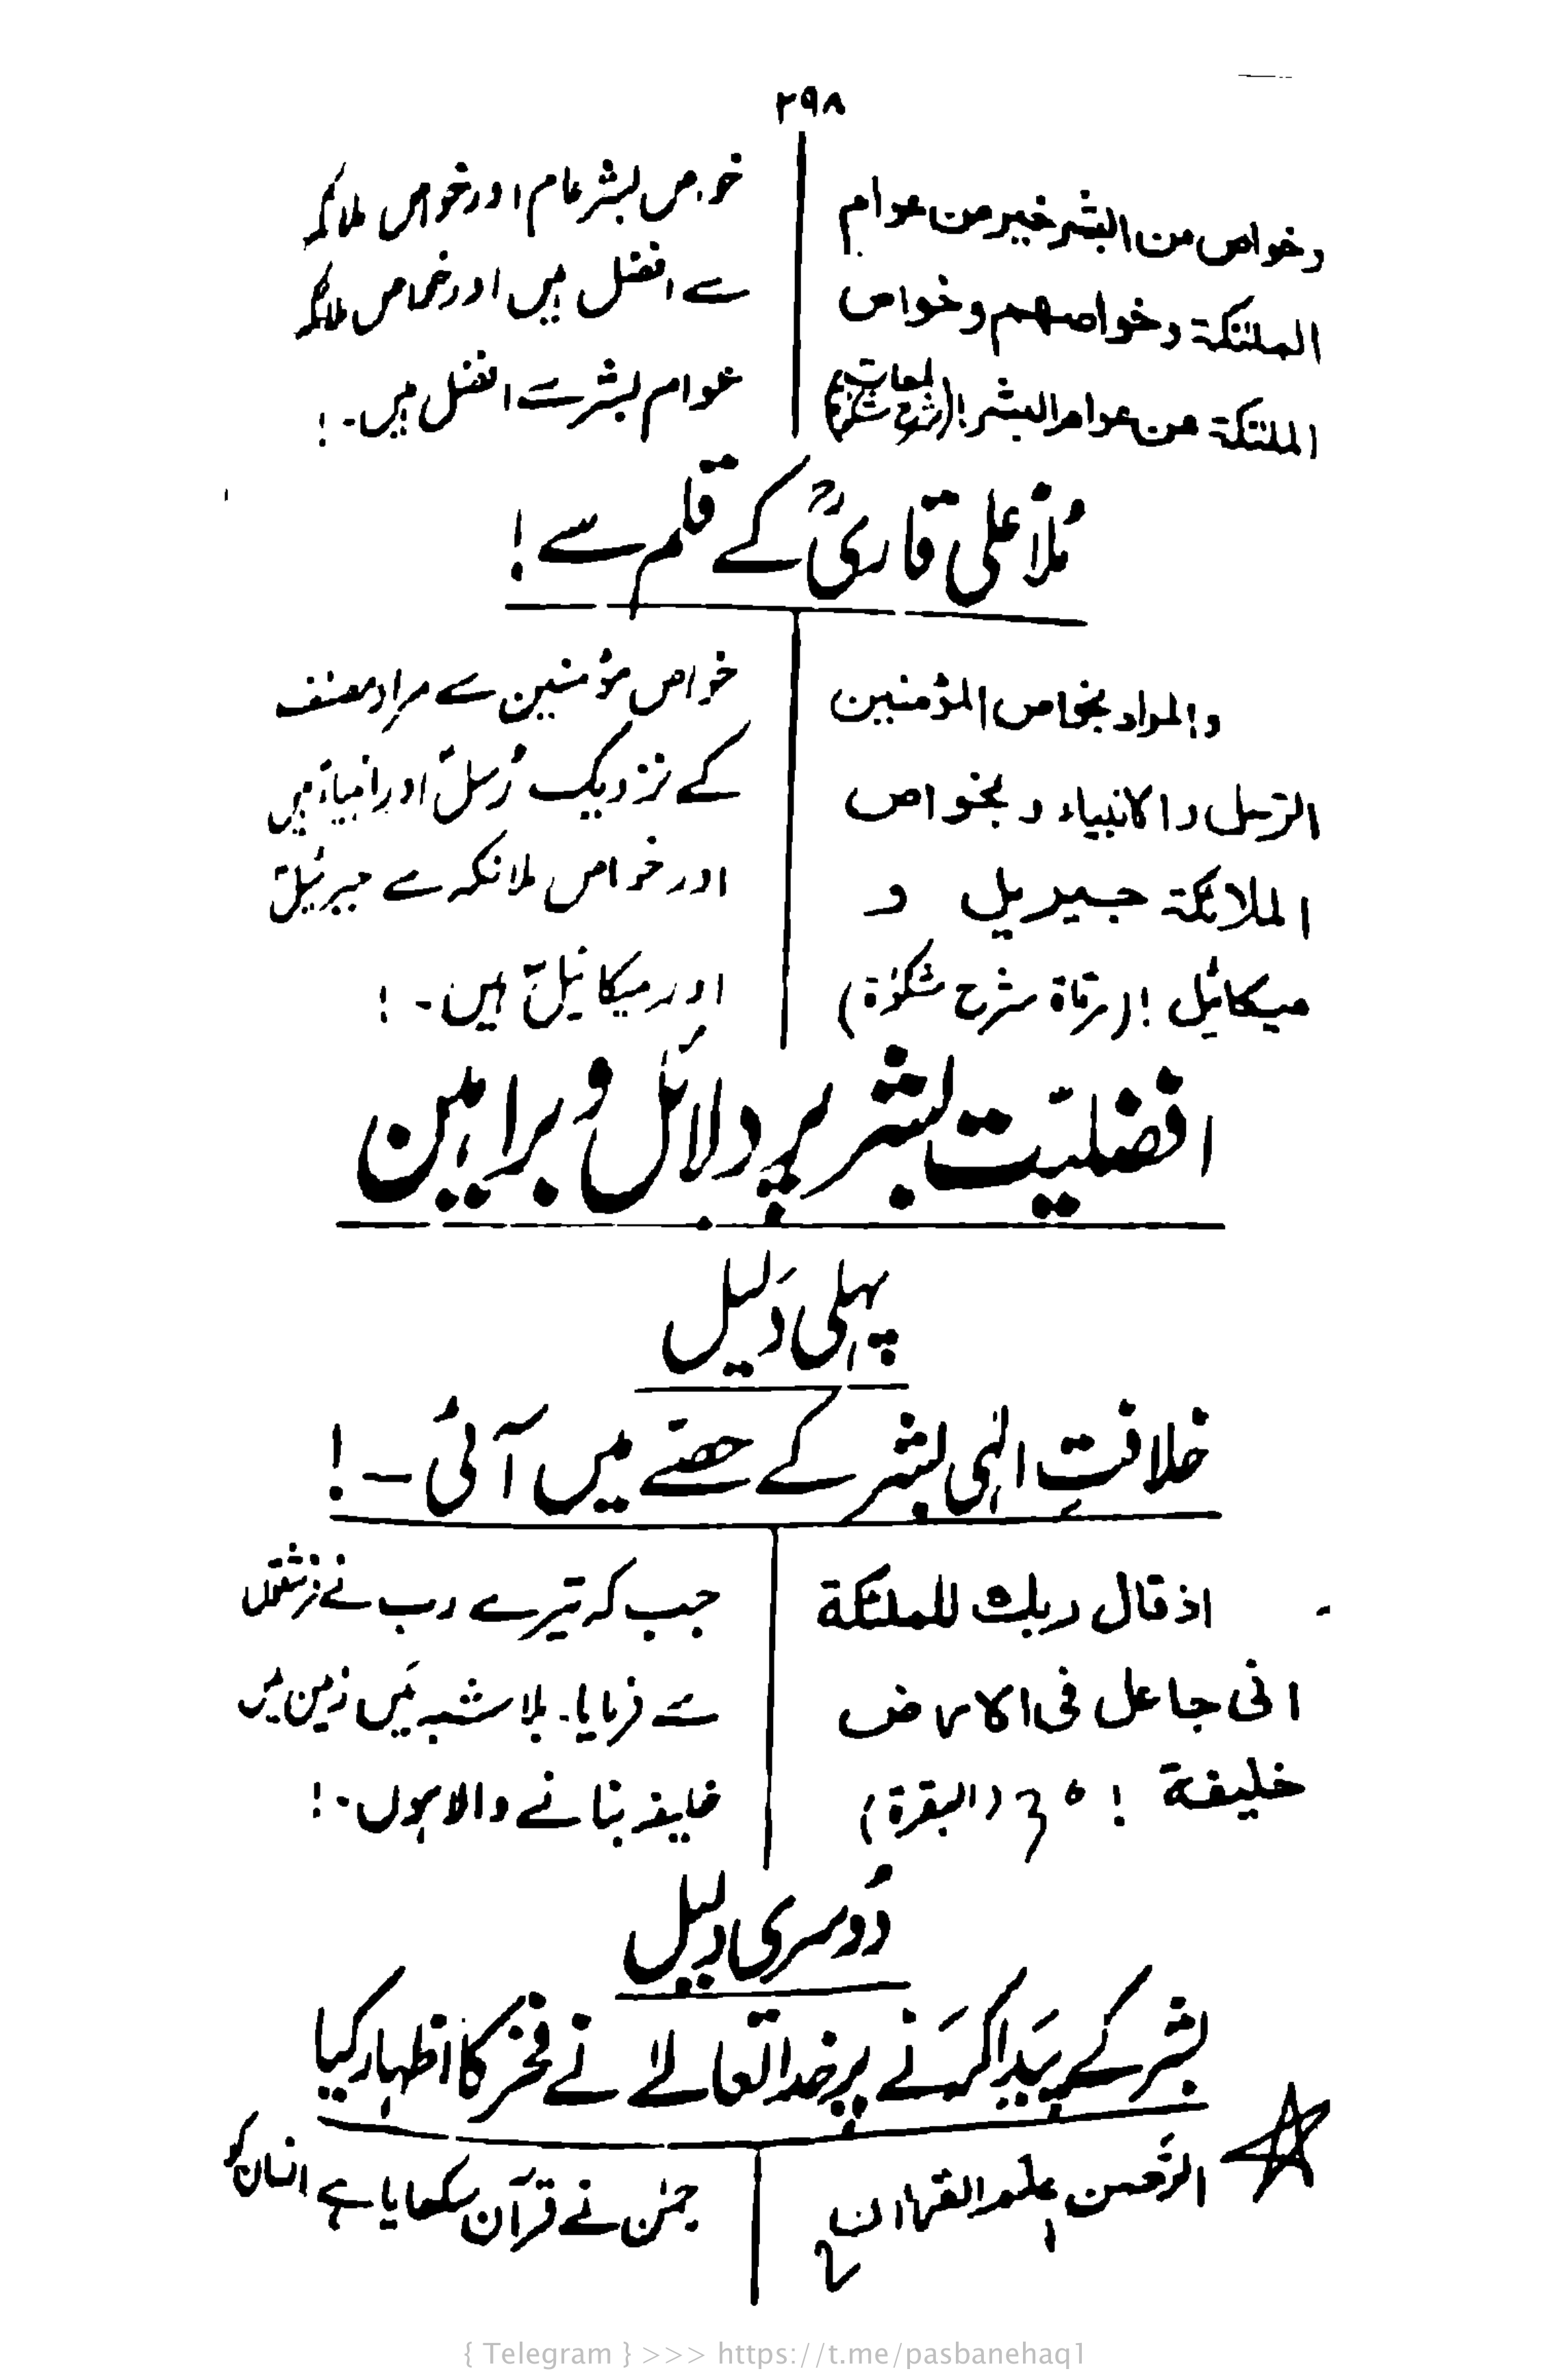 ۲۹۸
وخواص من البشر خیر من عوام
الملئکة وخواصهم وخواص
الملئکة من عوام البشر! (لمعات شرح مشکوٰة)
خواص بشر عام اور خواص ملائکہ
سے افضل ہیں اور خواص ملائکہ
عوام بشر سے افضل ہیں۔!
مُلّا علی قاریؒ کے قلم سے!
والمراد بخواص المؤمنین
الرسل والانبیاء وبخواص
الملائکة جبیریل و
میکائیل! (مرقاة شرح مشکوٰة)
خواص مؤمنین سے مراد مصنف
کے نزدیک رُسلؑ اور انبیاءؑ ہیں
اور خواص ملائکہ سے جبرئیلؑ
اور میکائیلؑ ہیں۔!
افضلیّت بشر پر دلائل و براہین
پہلی دلیل
خلافتِ الٰہی بشر کے حصّے میں آئی۔!
اذ قال ربك للملئکة
انی جاعل فی الارض
خلیفة! (البقرة)
جب کہ تیرے رب نے فرشتوں
سے فرمایا۔ بلاشبہ مَیں زمین میں
خلیفہ بنانے والا ہوں۔!
دُوسری دلیل
بشر کے پیدا کرنے پر خدا تعالےٰ نے فخر کا اظہار کیا
الرّحمن علم القران
رحمٰن نے قرآن سکھایا ہے انسان کو
{ Telegram } >>> https://t.me/pasbanehaq1